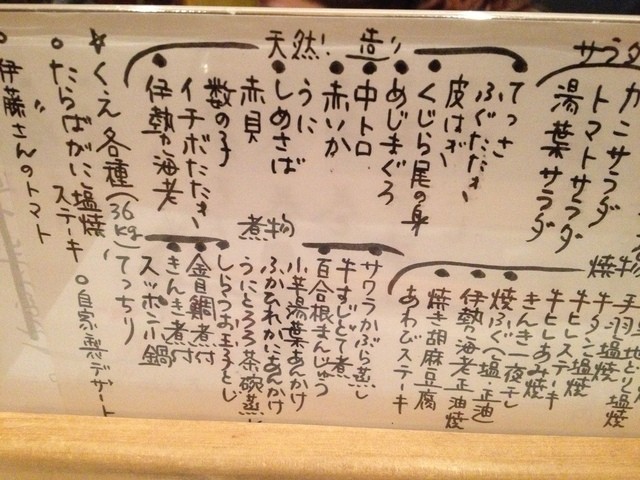 サラダ
カニサラダ
トマトサラダ
湯葉サラダ
天然!造り
てっさ
ふぐたたき
皮はぎ
くじら尾の身
めじまぐろ
中トロ
赤いか
うに
しめさば
赤貝
数の子
イチボたたき
伊勢海老
焼物
牛タン塩焼
牛ヒレ塩焼
牛ヒレステーキ
牛ヒレあみ焼
きんき一夜干し
焼ふぐ〈塩 正油〉
伊勢海老正油焼
焼き胡麻豆腐
あわびステーキ
煮物
サワラかぶら蒸し
牛すじとて煮
百合根まんじゅう
小芋湯葉あんかけ
ふかひれかにあんかけ
うにとろろ茶碗蒸し
しらうお玉子とじ
金目鯛煮付
きんき煮付
スッポン小鍋
てっちり
☆くえ各種(36kg)
たらばがに塩焼、ステーキ
伊藤さんのトマト
自家製デザート